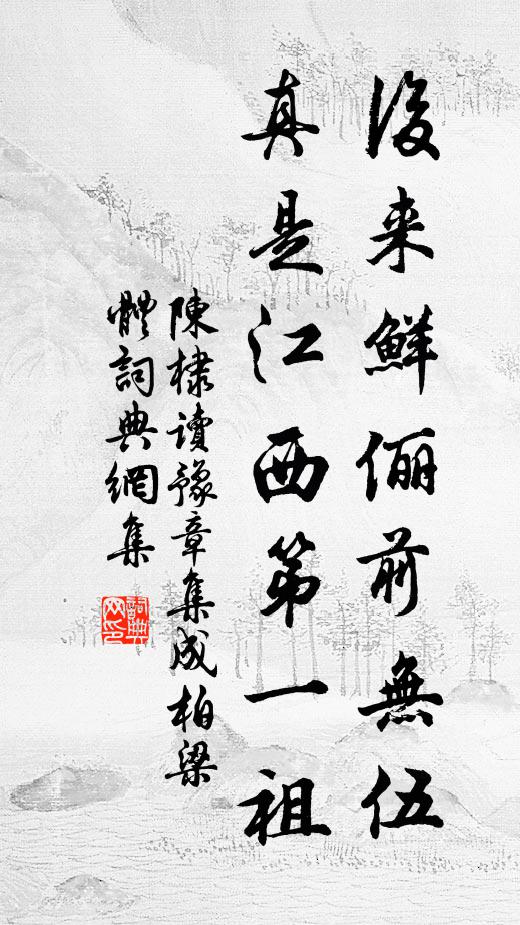 後来鮮儷前無伍
真是江西第一祖
陳棣讀豫章集成柏梁
體詞典網集
詞典网印